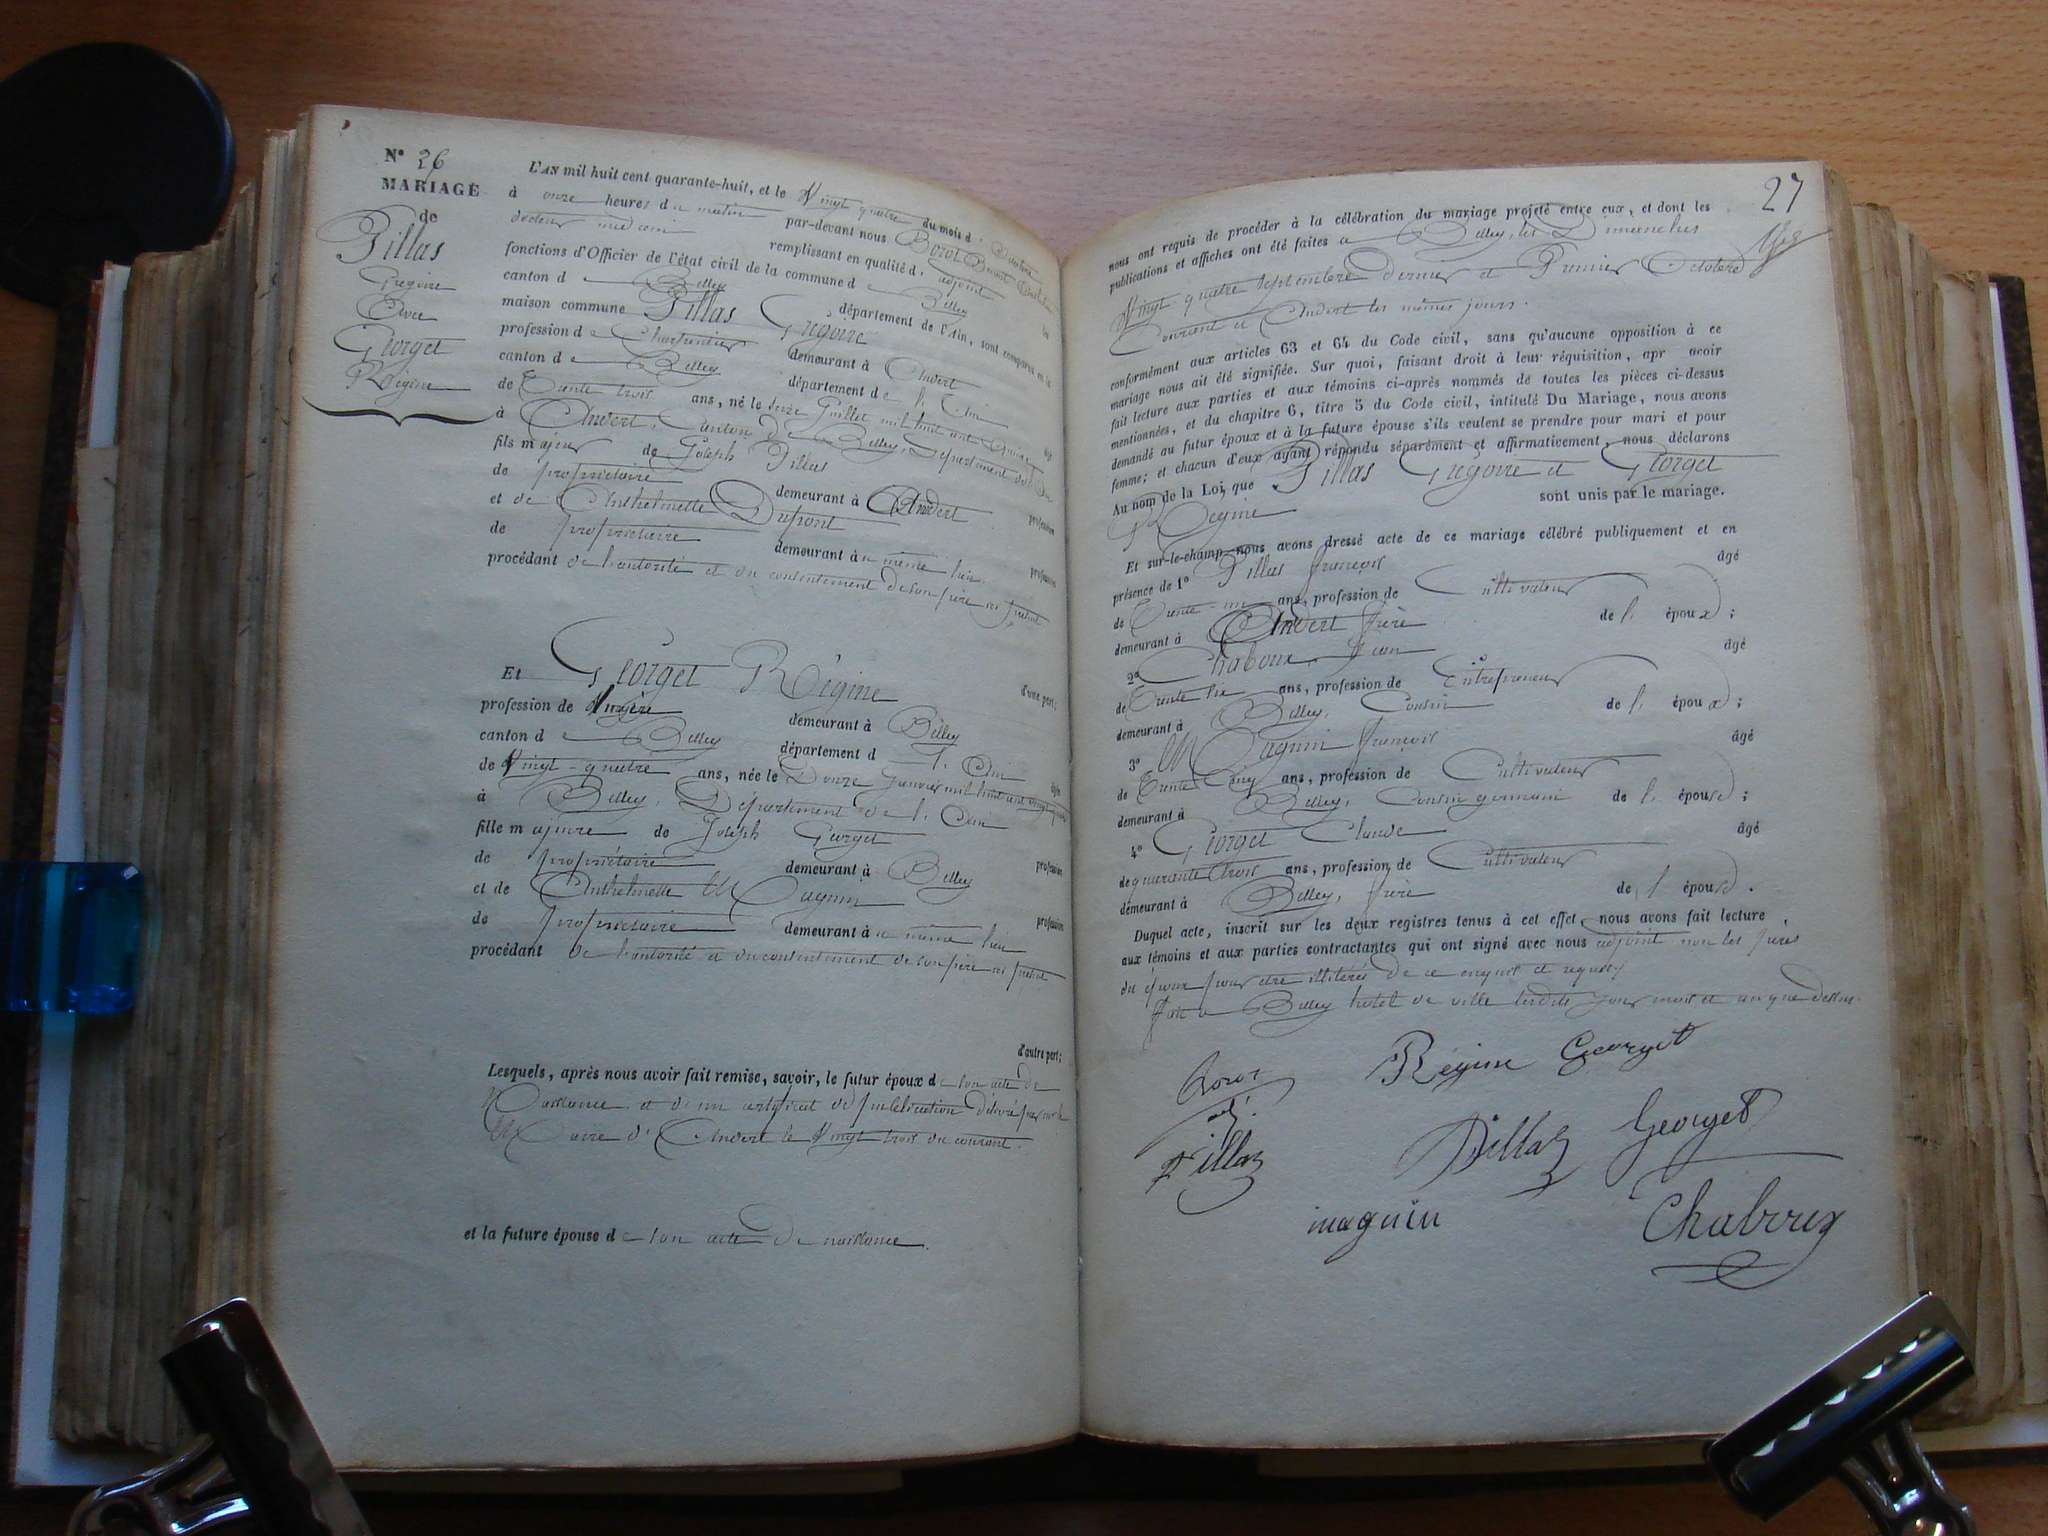 N° 26
MARIAGE
de
Pillas
Grégoire
Avec
Georget
Régine
L'AN mil huit cent quarante-huit, et le Vingt quatre du mois d'Octobre
à onze heures du matin par-devant nous
docteur médecin remplissant en qualité d'adjoint les
fonctions d'Officier de l'état civil de la commune de Belley
canton de Belley département de l'Ain, sont comparus en la
maison commune Pillas Grégoire
profession de Charpentier demeurant à Andert
canton de Belley département de l'Ain âgé
de Trente trois ans, né le seize Juillet mil huit cent Quinze
à Andert, Canton de Belley, Département de l'Ain
fils majeur de Joseph Pillas profession
de propriétaire demeurant à Andert
et de Anthelmette Dupont profession
de propriétaire demeurant au même lieu
procédant de l'autorité et du consentement de son père ici présent
d'une part;
Et Georget Régine
profession de demeurant à Belley
canton de Belley département de l'Ain âgée
de Vingt-quatre ans, née le Douze Janvier mil huit cent vingt quatre
à Belley, Département de l'Ain
fille majeure de Joseph Georget profession
de propriétaire demeurant à Belley
et de Anthelmette Magnin profession
de propriétaire demeurant au même lieu
procédant de l'autorité et du consentement de son père ici présent
d'autre part;
Lesquels, après nous avoir fait remise, savoir, le futur époux de son acte de
Naissance et d'un certificat de publication délivré par mr le
Maire d'Andert le Vingt trois du courant.
et la future épouse de son acte de naissance.
27
nous ont requis de procéder à la célébration du mariage projeté entre eux, et dont les
publications et affiches ont été faites à Belley, les Dimanches
Vingt quatre Septembre Dernier et Premier Octobre
Courant et Andert les mêmes jours.
conformément aux articles 63 et 64 du Code civil, sans qu'aucune opposition à ce
mariage nous ait été signifiée. Sur quoi, faisant droit à leur réquisition, apr avoir
fait lecture aux parties et aux témoins ci-après nommés de toutes les pièces ci-dessus
mentionnées, et du chapitre 6, titre 5 du Code civil, intitulé Du Mariage, nous avons
demandé au futur époux et à la future épouse s'ils veulent se prendre pour mari et pour
femme; et chacun d'eux ayant répondu séparément et affirmativement, nous déclarons
Au nom de la Loi, que Pillas Grégoire et Georget
Régine sont unis par le mariage.
Et sur-le-champ nous avons dressé acte de ce mariage célébré publiquement et en
présence de 1° Pillas françois âgé
de Trente-un ans, profession de Cultivateur
demeurant à Andert frère de l'époux;
2° Chaboux Jean âgé
de Trente six ans, profession de Entrepreneur
demeurant à Belley, Cousin de l'époux;
3° Magnin françois âgé
de Trente Cinq ans, profession de Cultivateur
demeurant à Belley, Cousin germain de l'épouse;
4° Georget Claude âgé
de quarante trois ans, profession de Cultivateur
demeurant à Belley, frère de l'épouse.
Duquel acte, inscrit sur les deux registres tenus à cet effet, nous avons fait lecture
aux témoins et aux parties contractantes qui ont signé avec nous adjoint non les pères
des époux pour être illitérés de ce enquis et requis,
fait à Belley hôtel de ville lesdits jour mois et an que dessus.
Régine Georget
adj.
Pillaz
Pillaz
Georget
magnin
Chaboux